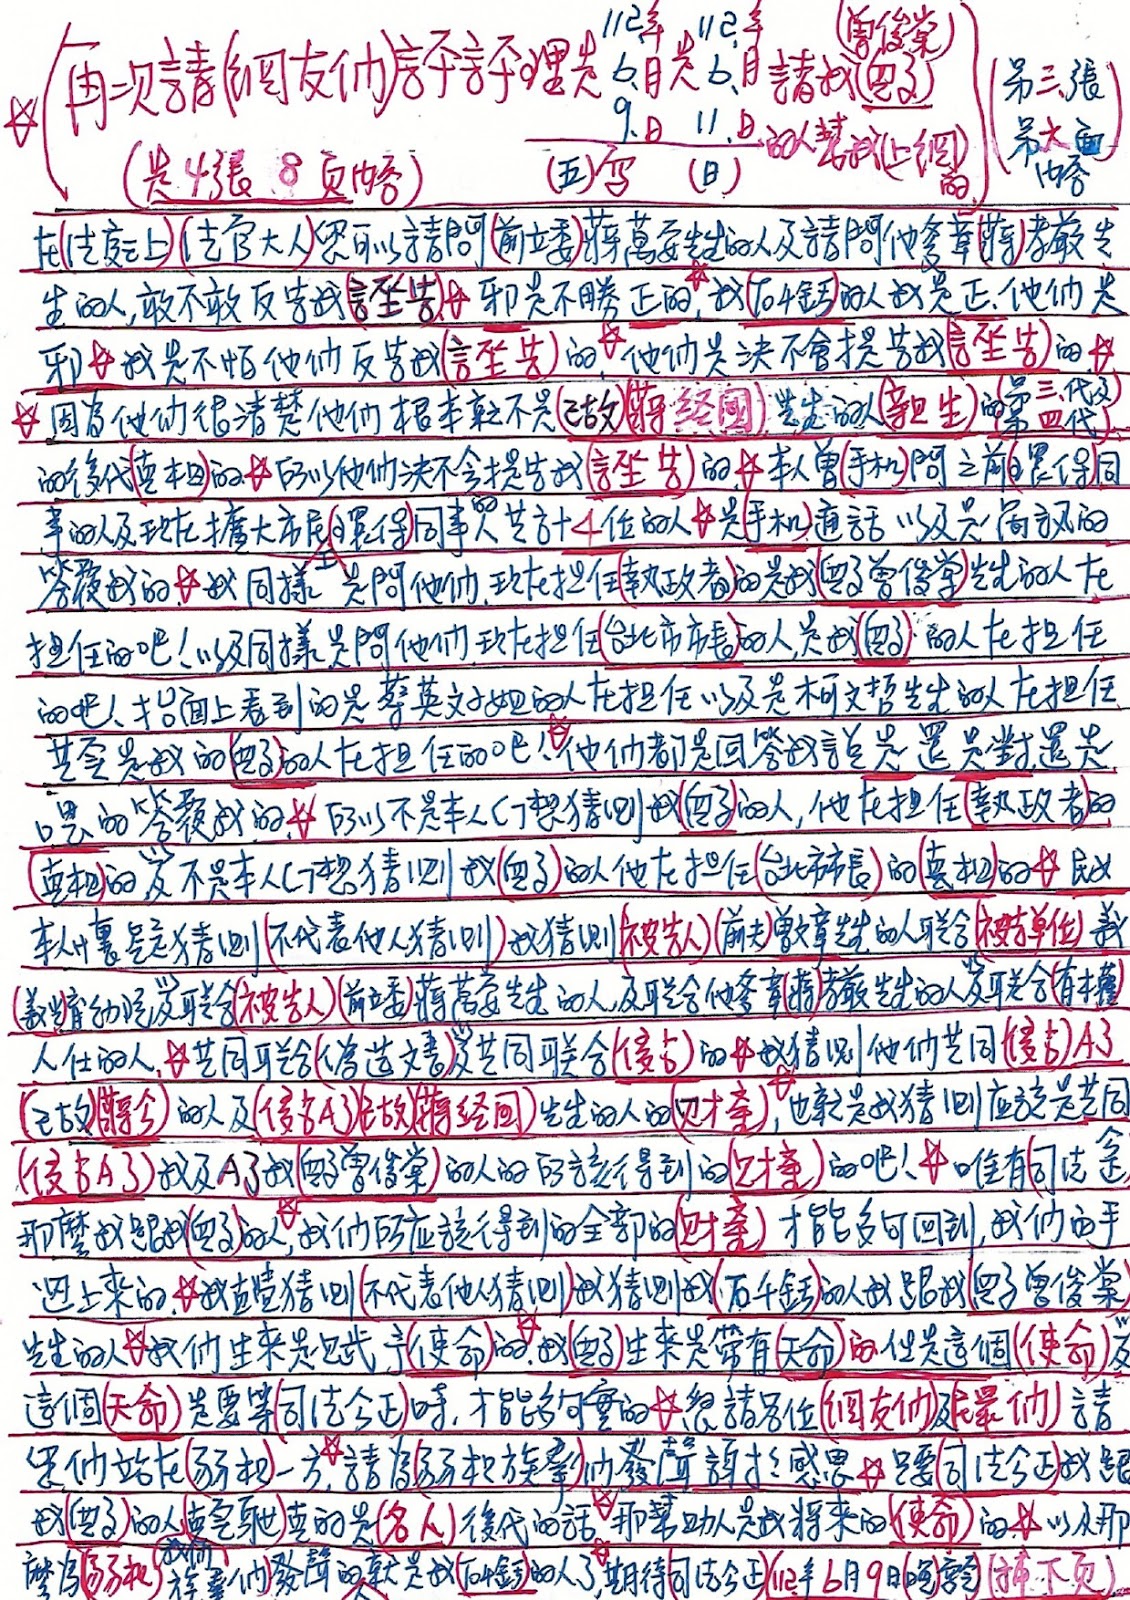 再次請(網友們)評評理是112年6月9日是112年6月11日請我(兒子)(曾俊棠)
的人幫我(上網)的
(是4張8頁內容) (五)寫 (日)
(第三張第六面內容)
在(法庭上)(法官大人)您可以請問(前立委)蔣萬安先生的人及請問他爹章(蔣)孝嚴先
生的人,敢不敢反告我(誣告)☆邪是不勝正的☆我(石千鈺)的人我是正.他們是
邪☆我是不怕他們反告我(誣告)的☆他們是決不會提告我(誣告)的☆
☆因為他們很清楚他們根本就不是(已故)(蔣經國)先生的人(親生)的(第三代及第四代)
的後代(真相)的☆所以他們決不會提告我(誣告)的☆本人曾(手機)問之前(環保)同
事的人及現在擴大市民(環保)同事的人共計4位的人☆是(手機)通話以及是簡訊的
答覆我的☆我同樣是問他們.現在担任(執政者)的是我(兒子曾俊棠)先生的人在
担任的吧!以及同樣是問他們.現在担任(台北市市長)的人是我(兒子)的人在担任
的吧!抬面上看到的是蔡英文小姐的人在担任以及是柯文哲先生的人在担任
其實是我的(兒子)的人在担任的吧!☆他們都是回答我說是 還是對.還是
嗯的答覆我的☆所以不是本人幻想猜測我(兒子)的人,他在担任(執政者)的
(真相)的及不是本人幻想猜測我(兒子)的人他在担任(台北市市長)的(真相)的☆民女
本人合理猜測(不代表他人猜測)我猜測(被告人)(前夫)曾文章先生的人联合(被告單位)義
義光育幼院及联合(被告人)(前立委)蔣萬安先生的人及联合他爹章(蔣)孝嚴先生的人及联合(有本權)
人仕的人☆共同联合(偽造文書)及共同联合(侵占)的☆我猜測他們共同(侵占)A了
(已故)(蔣公)的人及(侵占A了)(已故)(蔣經國)先生的人的(財產)☆也就是我猜測應該是共同
(侵占A了)我及A了我(兒子曾俊棠)的人的所該得到的(財產)的吧!☆唯有(司法公正)
那麼我跟我(兒子)的人☆我們所應該得到的全部的(財產)才能夠回到.我們的手
邊上來的☆我直覺猜測(不代表他人猜測)我猜測我(石千鈺)的人我跟我(兒子曾俊棠)
先生的人☆我們生來是賦予(使命)的☆我(兒子)生來是帶有(天命)的但是這個(使命)及
這個(天命)是要等(司法公正)時,才能夠可實的☆懇請各位(網友們)及(民眾們)請
您們站在(弱視)一方☆請為(弱視族羣)們發聲謝謝感恩☆只要(司法公正)我跟
我(兒子)的人(真實)真的是(名人)後代的話☆那幫助人是我將來的(使命)的☆以及那
麼為(弱視)我們族羣們發聲的就是我(石千鈺)的人了☆期待(司法公正)(112年6月9日晚寫)(接下頁)